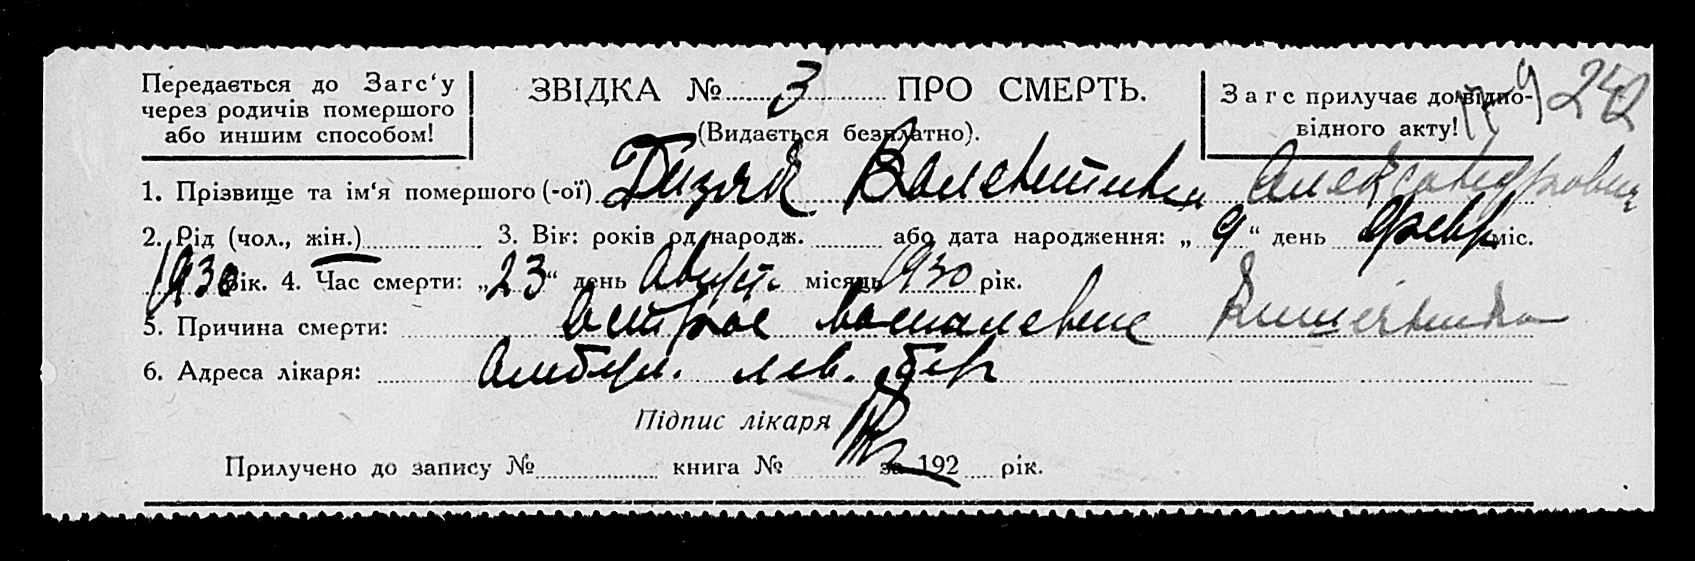 Передається до Загс‘у
через родичів помершого
або иншим способом!
ЗВІДКА № 3 ПРО СМЕРТЬ.
(Видається безплатно).
Загс прилучає до відпо-
відного акту!
242
1. Прізвище та ім‘я помершого (-ої) Дизяк Валентина Александровна
2. Рід (чол., жін.) 3. Вік: років од народж. або дата народження: „ 9 “ день февр. міс.
1930 рік. 4. Час смерти: „ 23 “ день Август. місяць 1930 рік.
5. Причина смерти: Острое воспаление кишечника
6. Адреса лікаря: Амбул. лев. бер
Підпис лікаря
Прилучено до запису № книга № за 192 рік.